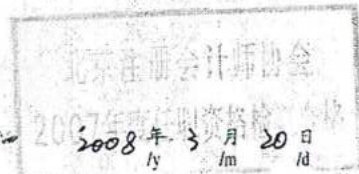 北京注册会计师协会
2007年度任职资格检 合格
2008年3月20日
/y /m /d